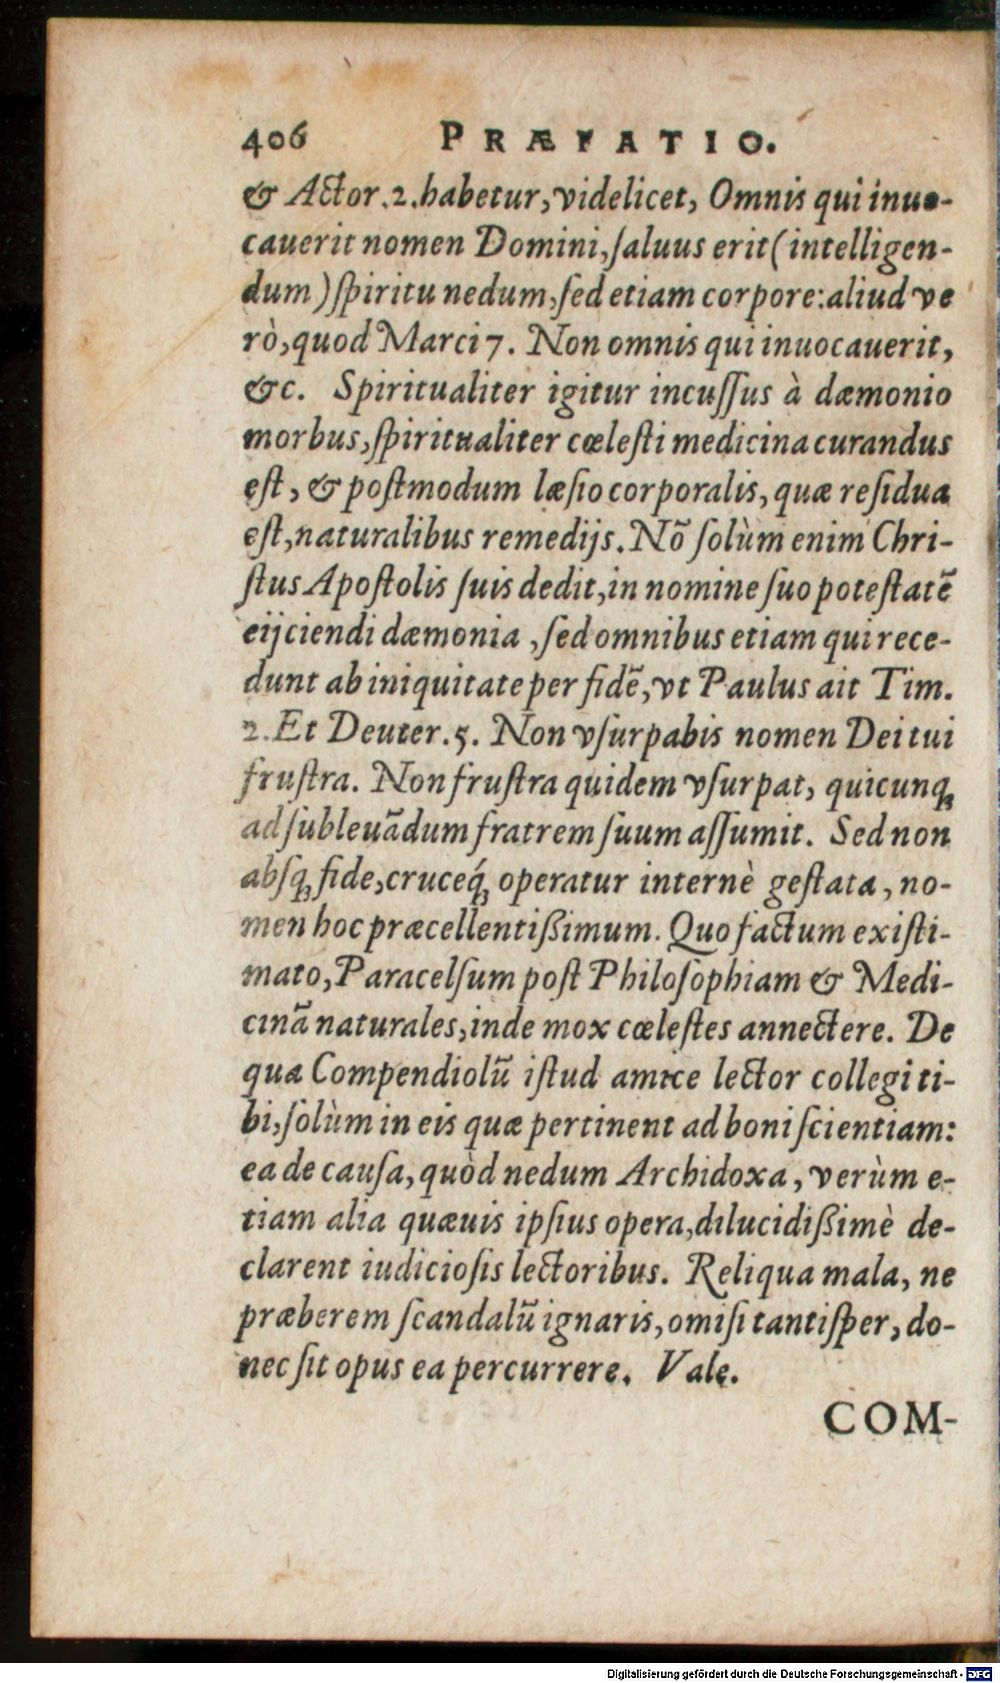 406 PRÆFATIO.
& Actor.2.habetur, videlicet, Omnis qui inuo-
cauerit nomen Domini, ſaluus erit (intelligen-
dum) ſpiritu nedum, ſed etiam corpore: aliud ve
rò, quod Marci 7. Non omnis qui inuocauerit,
&c. Spiritualiter igitur incuſſus à dæmonio
morbus, ſpiritualiter cœleſti medicina curandus
eſt, & poſtmodum læſio corporalis, quæ reſidua
eſt, naturalibus remedijs. Nõ ſolùm enim Chri-
ſtus Apoſtolis ſuis dedit, in nomine ſuo poteſtatẽ
eijciendi dæmonia, ſed omnibus etiam qui rece-
dunt ab iniquitate per fidẽ, vt Paulus ait Tim.
2. Et Deuter. 5. Non vſurpabis nomen Dei tui
fruſtra. Non fruſtra quidem vſurpat, quicunq́;
ad ſubleuãdum fratrem ſuum aſſumit. Sed non
abſq; fide, cruceq́; operatur internè geſtata, no-
men hoc præcellentißimum. Quo factum exiſti-
mato, Paracelſum poſt Philoſophiam & Medi-
cinã naturales, inde mox cœleſtes annectere. De
qua Compendiolũ iſtud amice lector collegi ti-
bi, ſolùm in eis quæ pertinent ad boni ſcientiam:
ea de cauſa, quòd nedum Archidoxa, verùm e-
tiam alia quæuis ipſius opera, dilucidißimè de-
clarent iudicioſis lectoribus. Reliqua mala, ne
præberem ſcandalũ ignaris, omiſi tantiſper, do-
nec ſit opus ea percurrere. Vale.
COM-
Digitalisierung gefördert durch die Deutsche Forschungsgemeinschaft - DFG